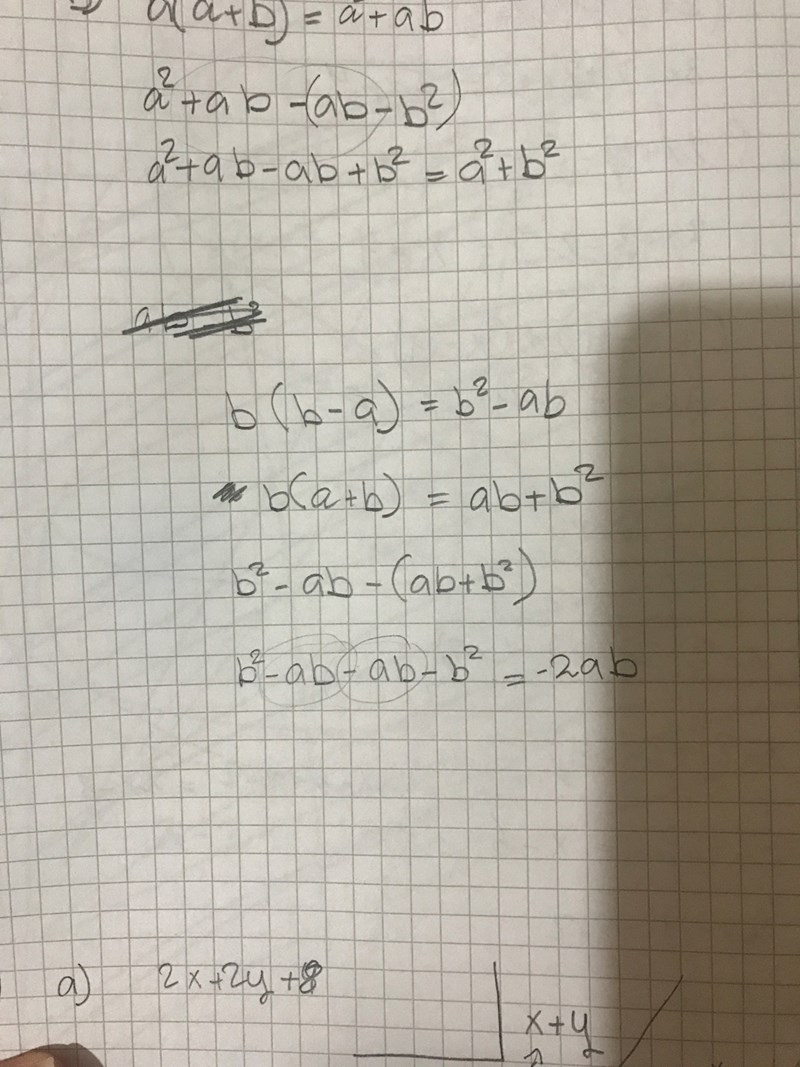 a(a+b) = a²+ab
a²+ab-(ab-b²)
a²+ab-ab+b² = a²+b²
b(b-a) = b²-ab
b(a+b) = ab+b²
b²-ab-(ab+b²)
b²-ab-ab-b² = -2ab
a) 2x+2y+8
x+y